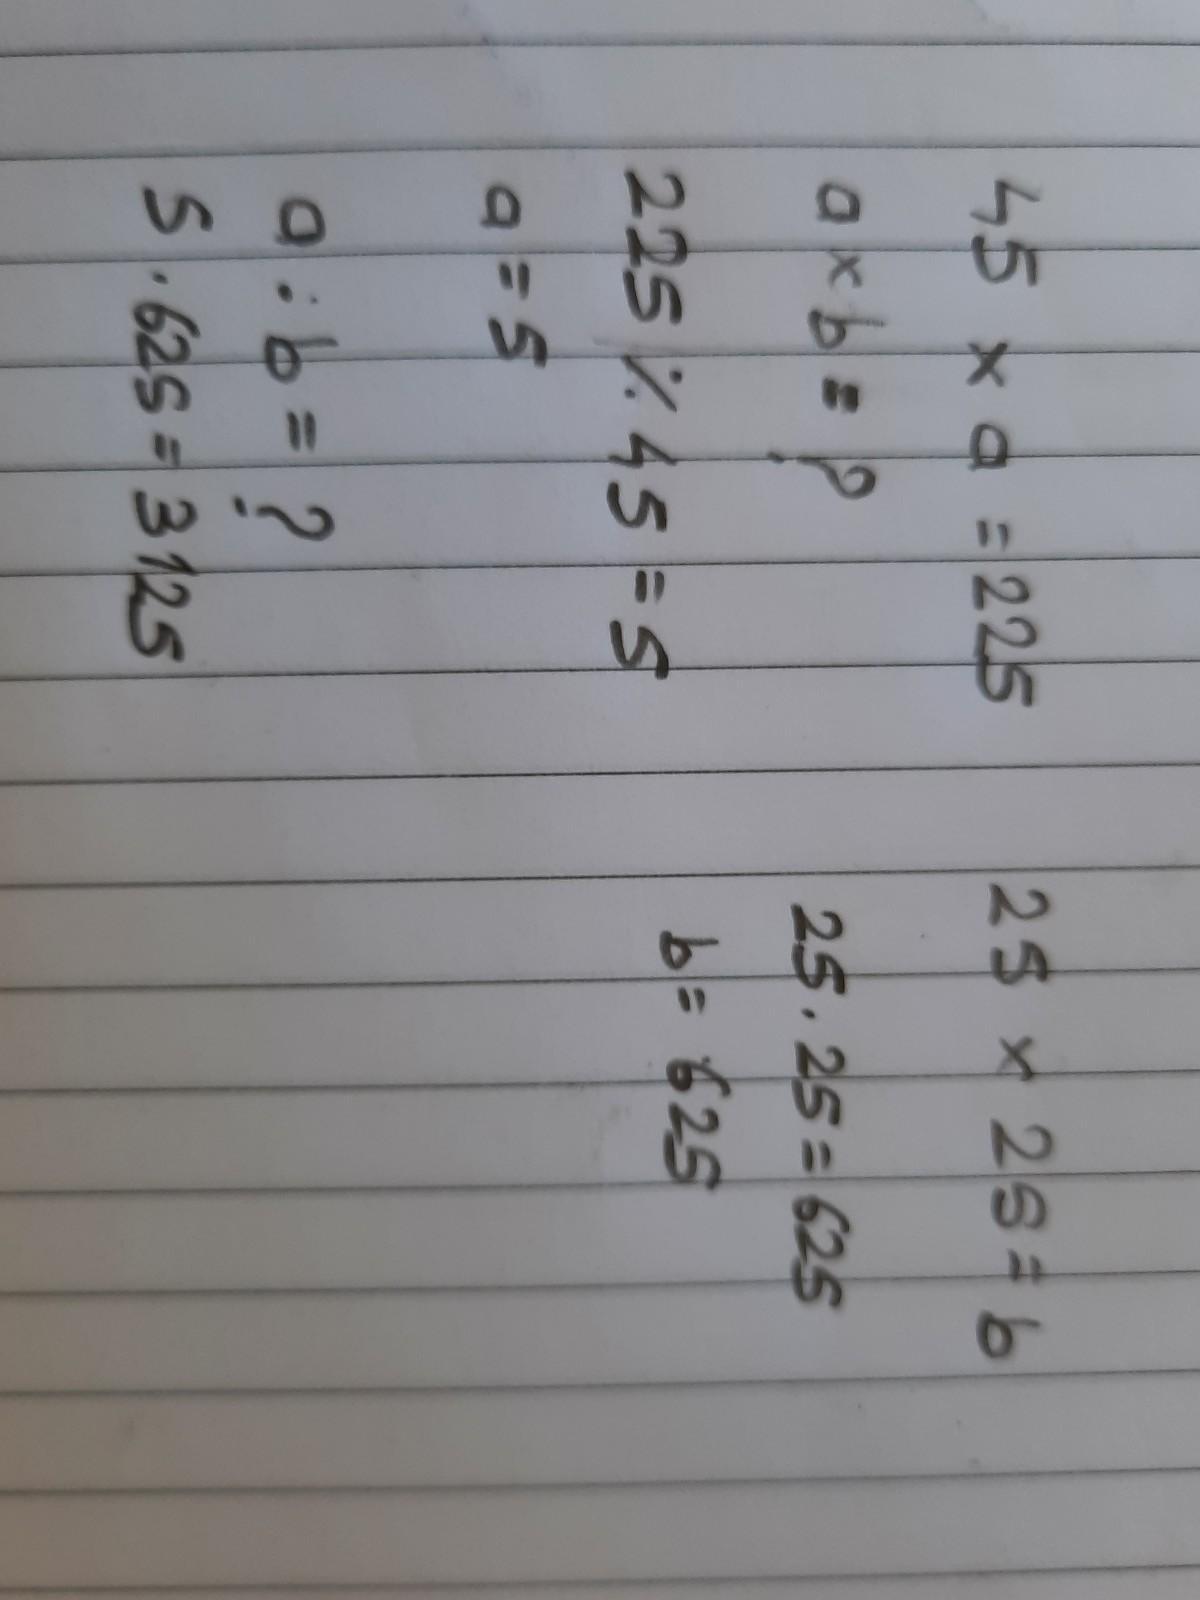 45 x a = 225 25 x 25 = b
a x b = ?
25 . 25 = 625
225 ٪ 45 = 5
b = 625
a = 5
a : b = ?
5 . 625 = 3125